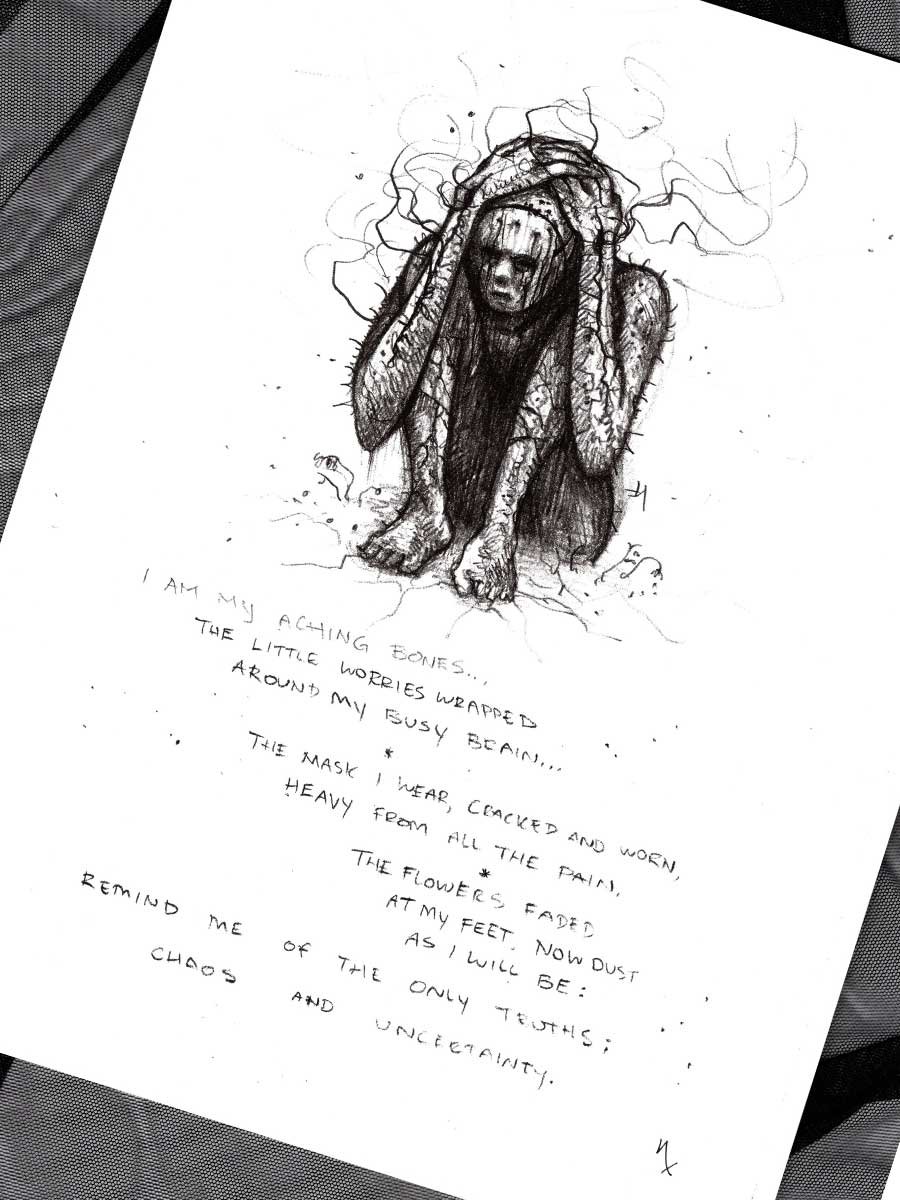 I AM MY ACHING BONES...
THE LITTLE WORRIES WRAPPED
AROUND MY BUSY BRAIN...
*
THE MASK I WEAR, CRACKED AND WORN,
HEAVY FROM ALL THE PAIN.
*
THE FLOWERS FADED
AT MY FEET, NOW DUST
AS I WILL BE:
REMIND ME OF THE ONLY TRUTHS:
CHAOS AND UNCERTAINTY.